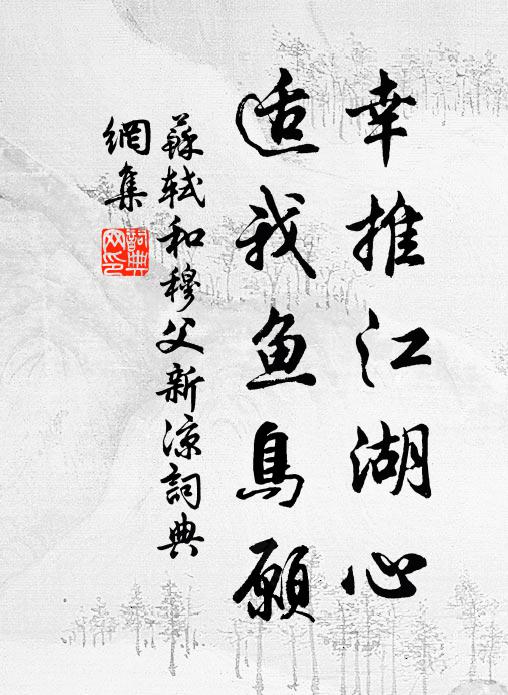 幸推江湖心
适我鱼鳥願
蘇軾和穆父新涼詞典
網集
詞典網印